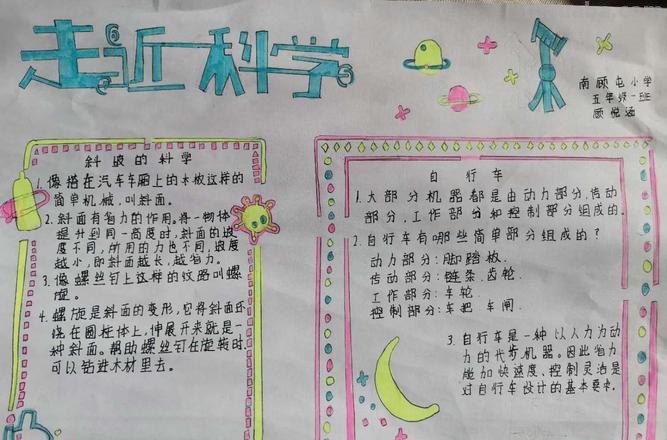 走近科学
南顾屯小学
五年级一班
顾悦涵
斜坡的科学
1. 像搭在汽车车厢上的木板这样的
简单机械,叫斜面。
2. 斜面有省力的作用。将一物体
提升到同一高度时,斜面的坡
度不同,所用的力也不同,坡度
越小,即斜面越长,越省力。
3. 像螺丝钉上这样的纹路叫螺
旋。
4. 螺旋是斜面的变形,它将斜面环
绕在圆柱体上,伸展开来就是一
种斜面。帮助螺丝钉在旋转时
可以钻进木材里去。
自行车
1. 大部分机器都是由动力部分,传动
部分,工作部分和控制部分组成的。
2. 自行车有哪些简单部分组成的?
动力部分:脚踏板.
传动部分:链条.齿轮.
工作部分:车轮.
控制部分:车把.车闸.
3. 自行车是一种以人力为动
力的代步机器。因此省力
能加快速度、控制灵活是
对自行车设计的基本要求.